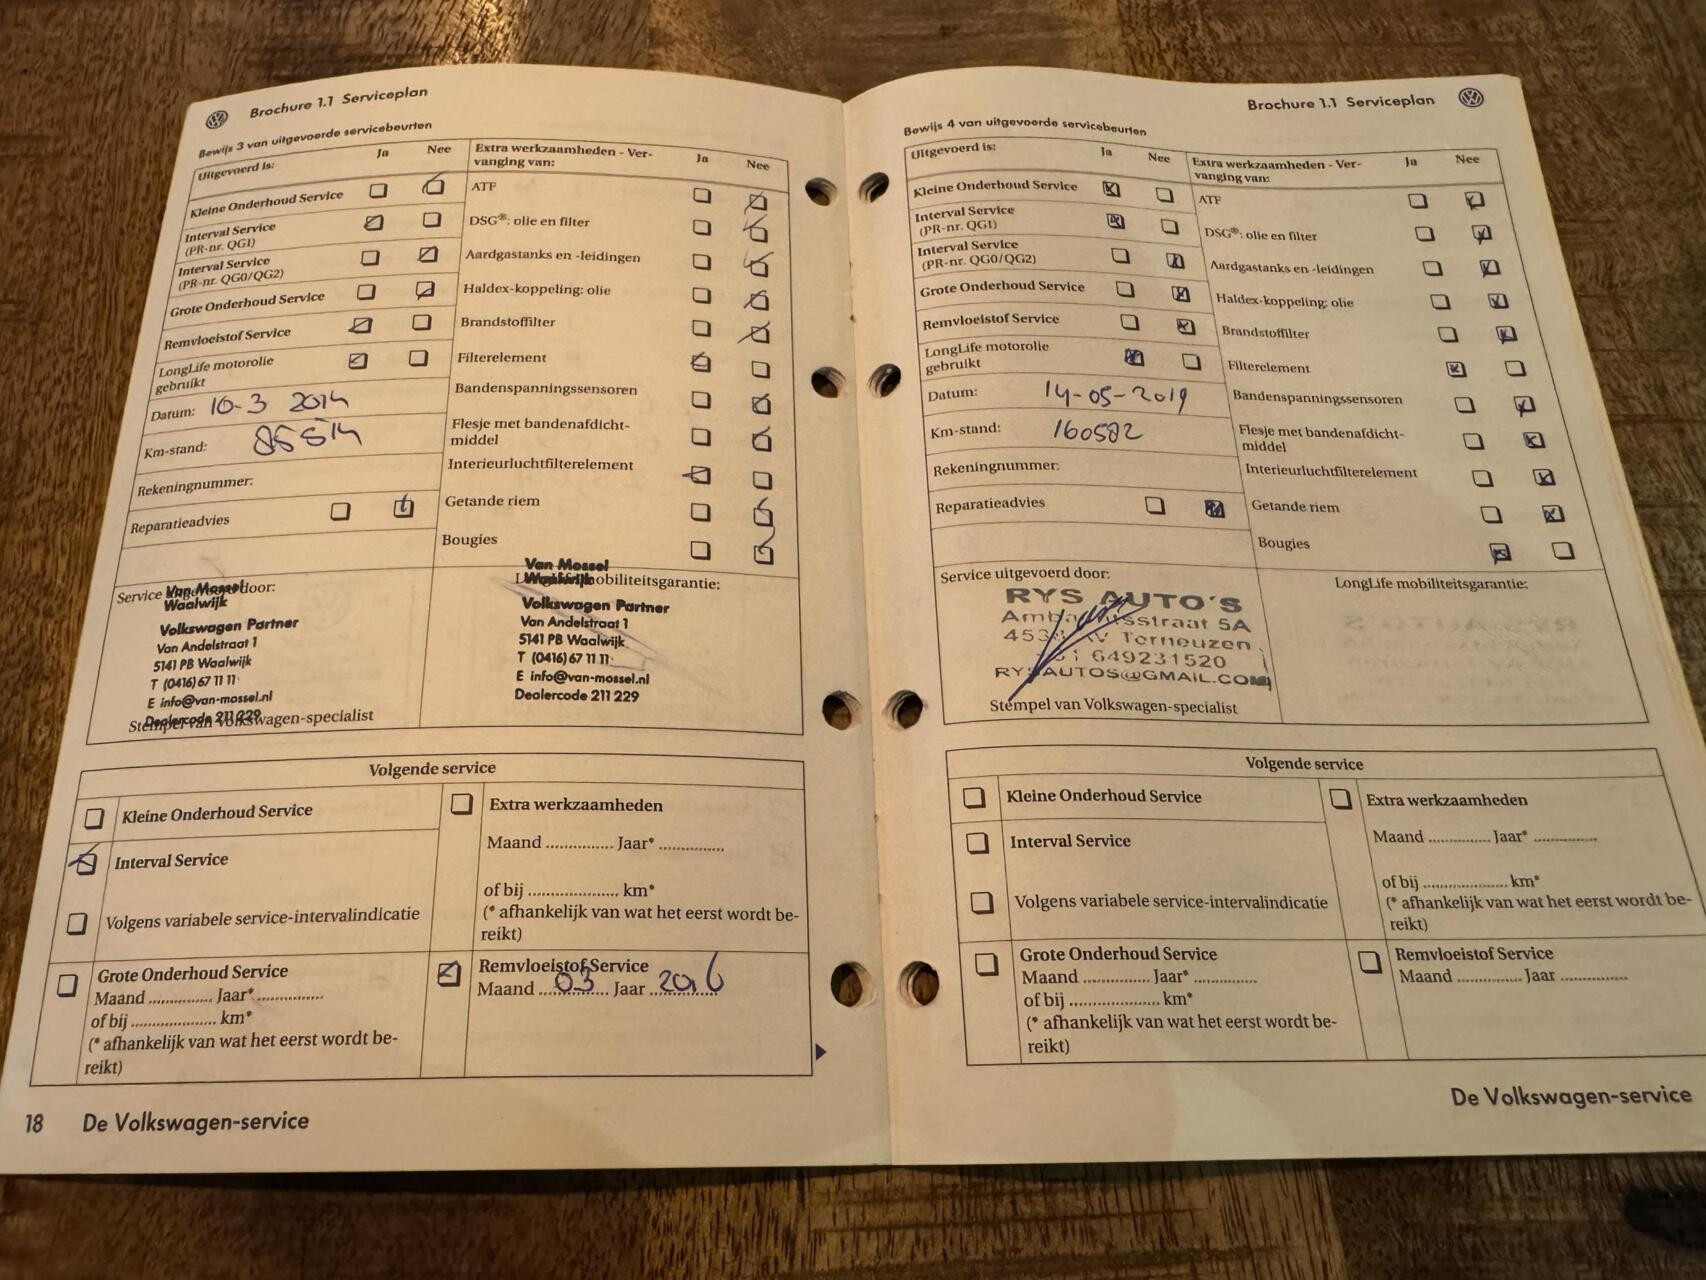 Brochure 1.1 Serviceplan
Bewijs 3 van uitgevoerde servicebeurten
Uitgevoerd is: Ja Nee
Kleine Onderhoud Service
Interval Service
(PR-nr. QG1)
Interval Service
(PR-nr. QG0/QG2)
Grote Onderhoud Service
Remvloeistof Service
LongLife motorolie
gebruikt
Datum: 10-3 2014
Km-stand: 85514
Rekeningnummer:
Reparatieadvies
Extra werkzaamheden - Ver-
vanging van: Ja Nee
ATF
DSG®: olie en filter
Aardgastanks en -leidingen
Haldex-koppeling: olie
Brandstoffilter
Filterelement
Bandenspanningssensoren
Flesje met bandenafdicht-
middel
Interieurluchtfilterelement
Getande riem
Bougies
Service door:
Van Mossel
Waalwijk
Volkswagen Partner
Van Andelstraat 1
5141 PB Waalwijk
T (0416) 67 11 11
E info@van-mossel.nl
Dealercode 211 229
Stempel van Volkswagen-specialist
mobiliteitsgarantie:
Van Mossel
Waalwijk
Volkswagen Partner
Van Andelstraat 1
5141 PB Waalwijk
T (0416) 67 11 11
E info@van-mossel.nl
Dealercode 211 229
Volgende service
Kleine Onderhoud Service
Interval Service
Volgens variabele service-intervalindicatie
Grote Onderhoud Service
Maand .............. Jaar* ..............
of bij .................... km*
(* afhankelijk van wat het eerst wordt be-
reikt)
Extra werkzaamheden
Maand .............. Jaar* ..............
of bij .................... km*
(* afhankelijk van wat het eerst wordt be-
reikt)
Remvloeistof Service
Maand 03 Jaar 2016
18 De Volkswagen-service
Brochure 1.1 Serviceplan
Bewijs 4 van uitgevoerde servicebeurten
Uitgevoerd is: Ja Nee
Kleine Onderhoud Service
Interval Service
(PR-nr. QG1)
Interval Service
(PR-nr. QG0/QG2)
Grote Onderhoud Service
Remvloeistof Service
LongLife motorolie
gebruikt
Datum: 14-05-2019
Km-stand: 160582
Rekeningnummer:
Reparatieadvies
Extra werkzaamheden - Ver-
vanging van: Ja Nee
ATF
DSG®: olie en filter
Aardgastanks en -leidingen
Haldex-koppeling: olie
Brandstoffilter
Filterelement
Bandenspanningssensoren
Flesje met bandenafdicht-
middel
Interieurluchtfilterelement
Getande riem
Bougies
Service uitgevoerd door:
RYS AUTO'S
5A
Terneuzen
649231520
RYSAUTOS@GMAIL.COM
Stempel van Volkswagen-specialist
LongLife mobiliteitsgarantie:
Volgende service
Kleine Onderhoud Service
Interval Service
Volgens variabele service-intervalindicatie
Grote Onderhoud Service
Maand .............. Jaar* ..............
of bij .................... km*
(* afhankelijk van wat het eerst wordt be-
reikt)
Extra werkzaamheden
Maand .............. Jaar* ..............
of bij .................... km*
(* afhankelijk van wat het eerst wordt be-
reikt)
Remvloeistof Service
Maand .............. Jaar ..............
De Volkswagen-service